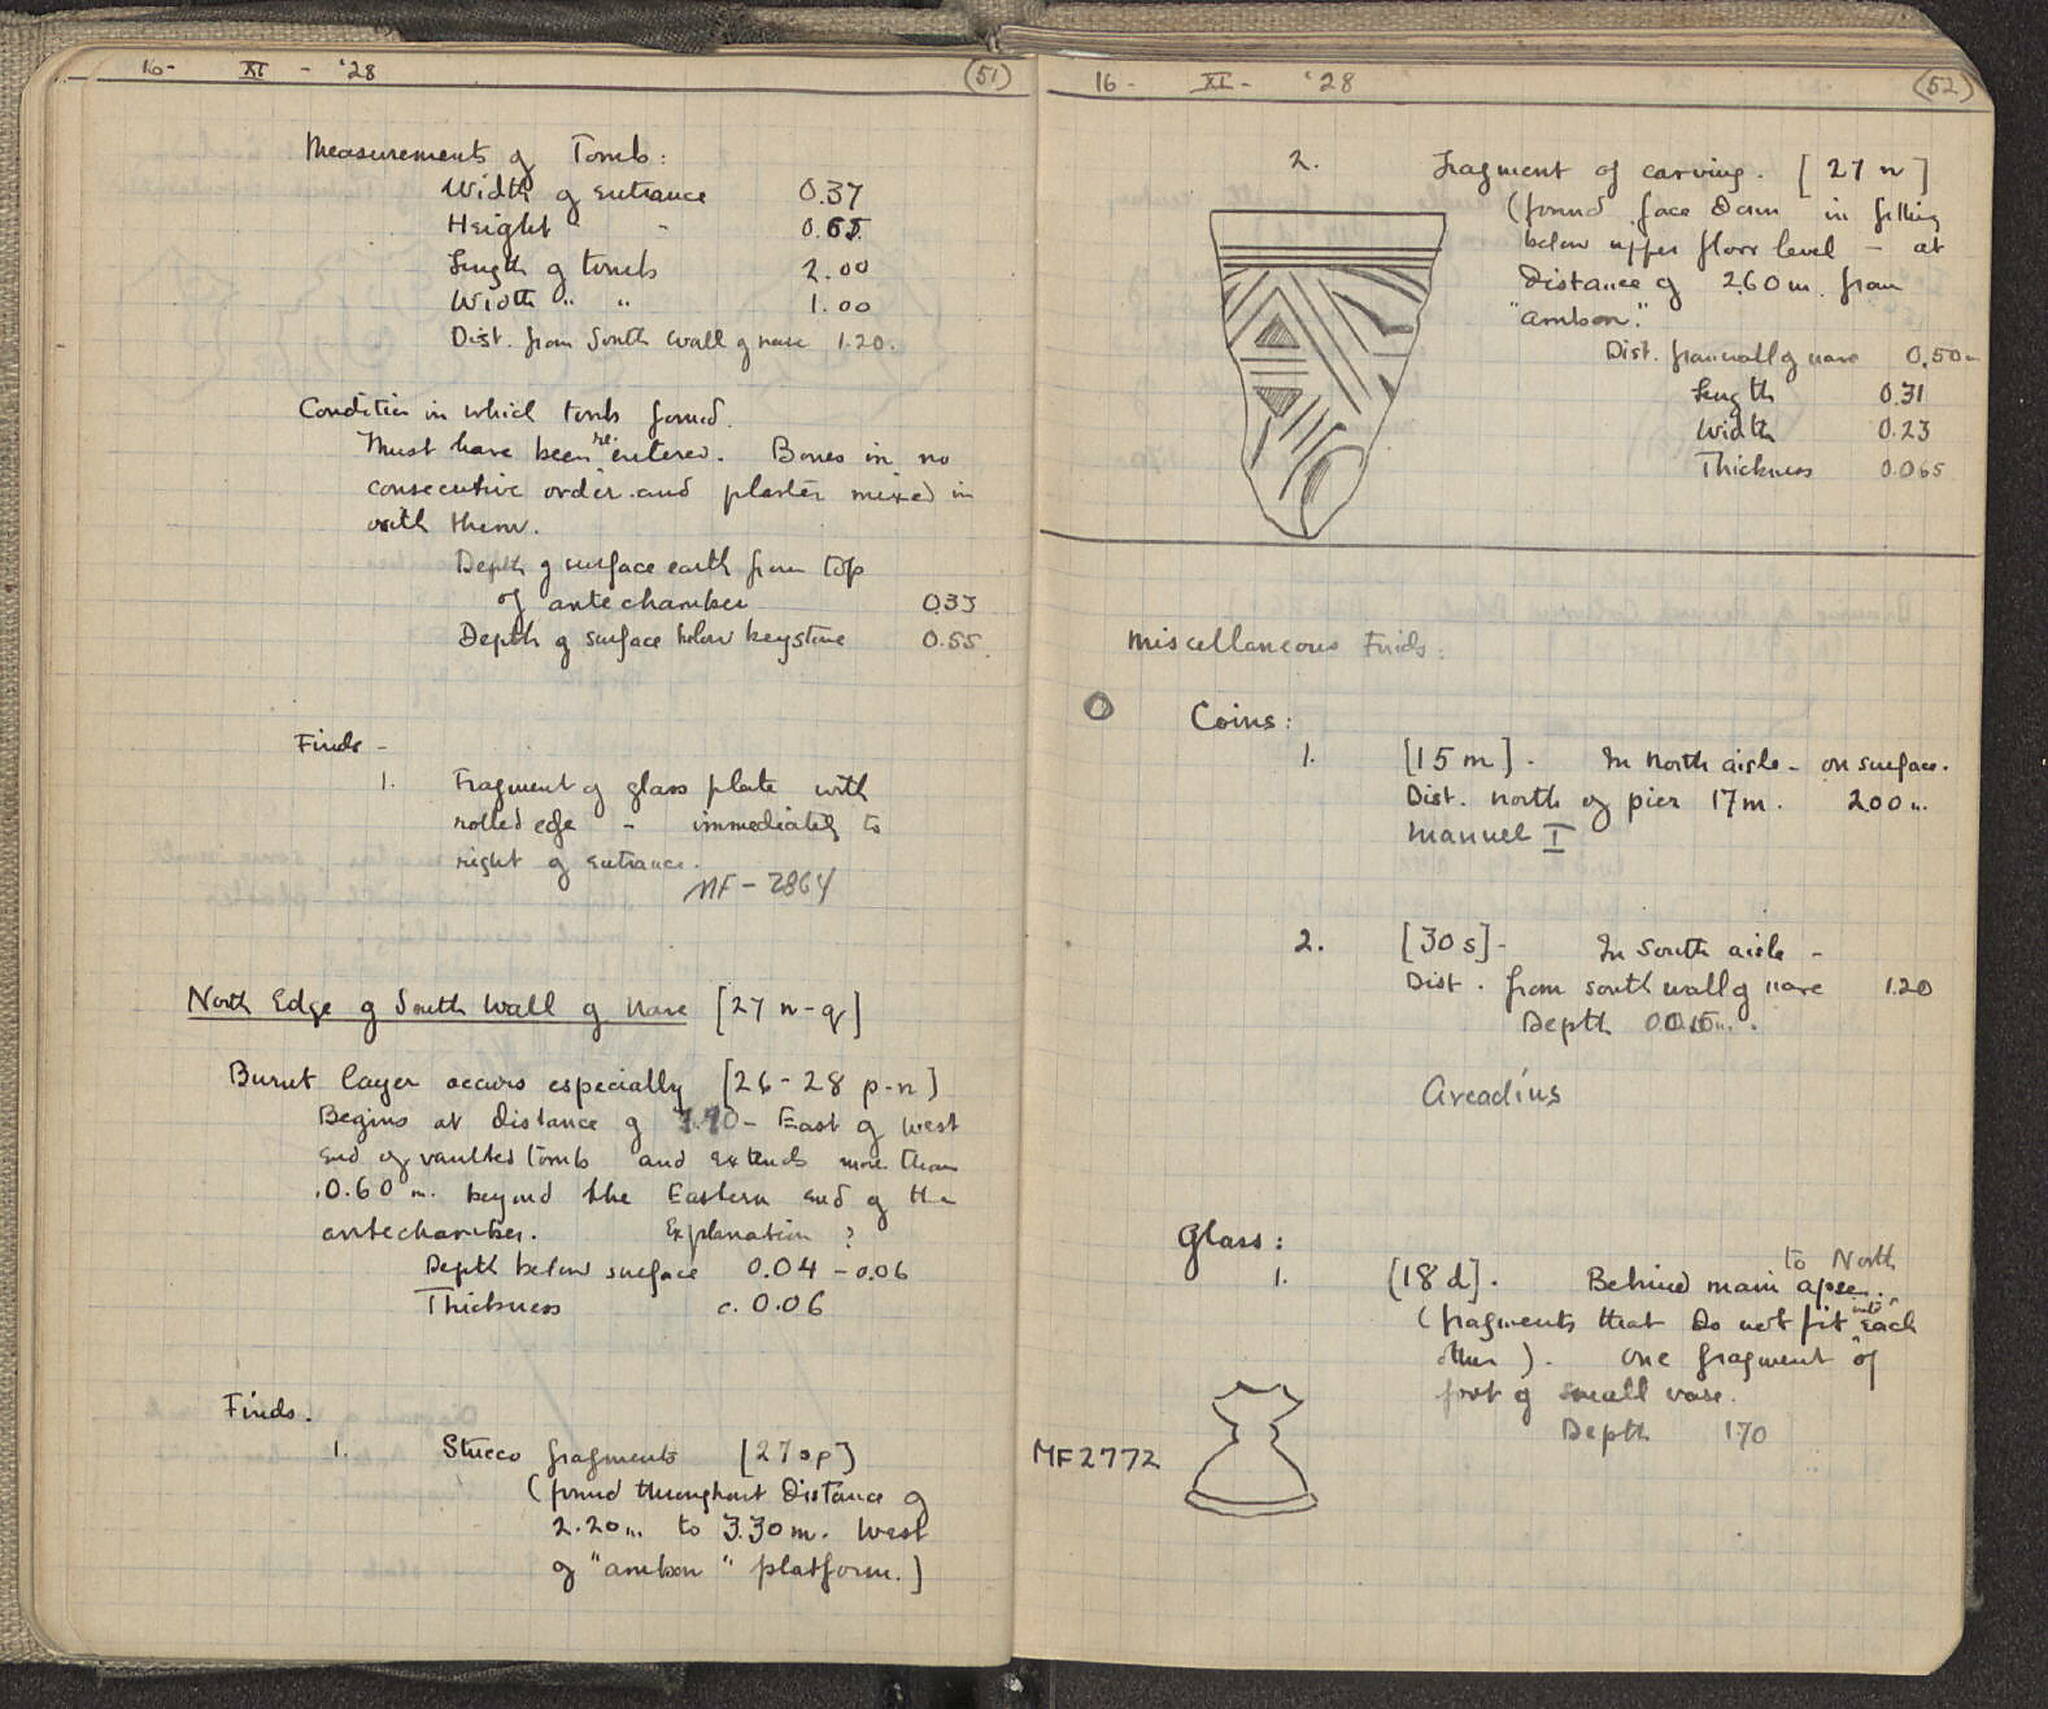 16- XI - '28 (51)
Measurements of Tomb:
Width of entrance 0.37
Height " " 0.65
Length of tomb 2.00
Width " " 1.00
Dist. from South Wall of nave 1.20.
Condition in which tomb found.
Must have been re-entered. Bones in no
consecutive order and plaster mixed in
with them.
Depth of surface earth from top
of antechamber
Depth of surface below keystone 0.55.
Finds -
1. Fragment of glass plate with
rolled edge - immediately to
right of entrance.
MF-2864
North Edge of South Wall of Nave [27 n-q]
Burnt layer occurs especially [26-28 p-n]
Begins at distance of East of West
end of vaulted tomb and extends more than
.0.60 m. beyond the Eastern end of the
antechamber. Explanation ?
Depth below surface 0.04 - 0.06
Thickness c. 0.06
Finds.
1. Stucco fragments [27 op]
(found throughout distance of
2.20m to 3.30m. West
of "ambon" platform.)
16- XI- '28 (52)
2. Fragment of carving. [27 n]
(found face down in filling
below upper floor level - at
distance of 2.60m. from
"ambon."
Dist. from wall of nave 0.50m
Length 0.31
Width 0.23
Thickness 0.065
Miscellaneous Finds:
O Coins:
1. [15 m] - In North aisle - on surface.
Dist. north of pier 17m. 2.00m.
Manuel I
2. [30 s] - In South aisle -
Dist. from south wall of nave 1.20
Depth
Arcadius
Glass:
to North
1. [18 d]. Behind main apse.
(fragments that do not fit into each
other). One fragment of
foot of small vase.
Depth 1.70
MF2772